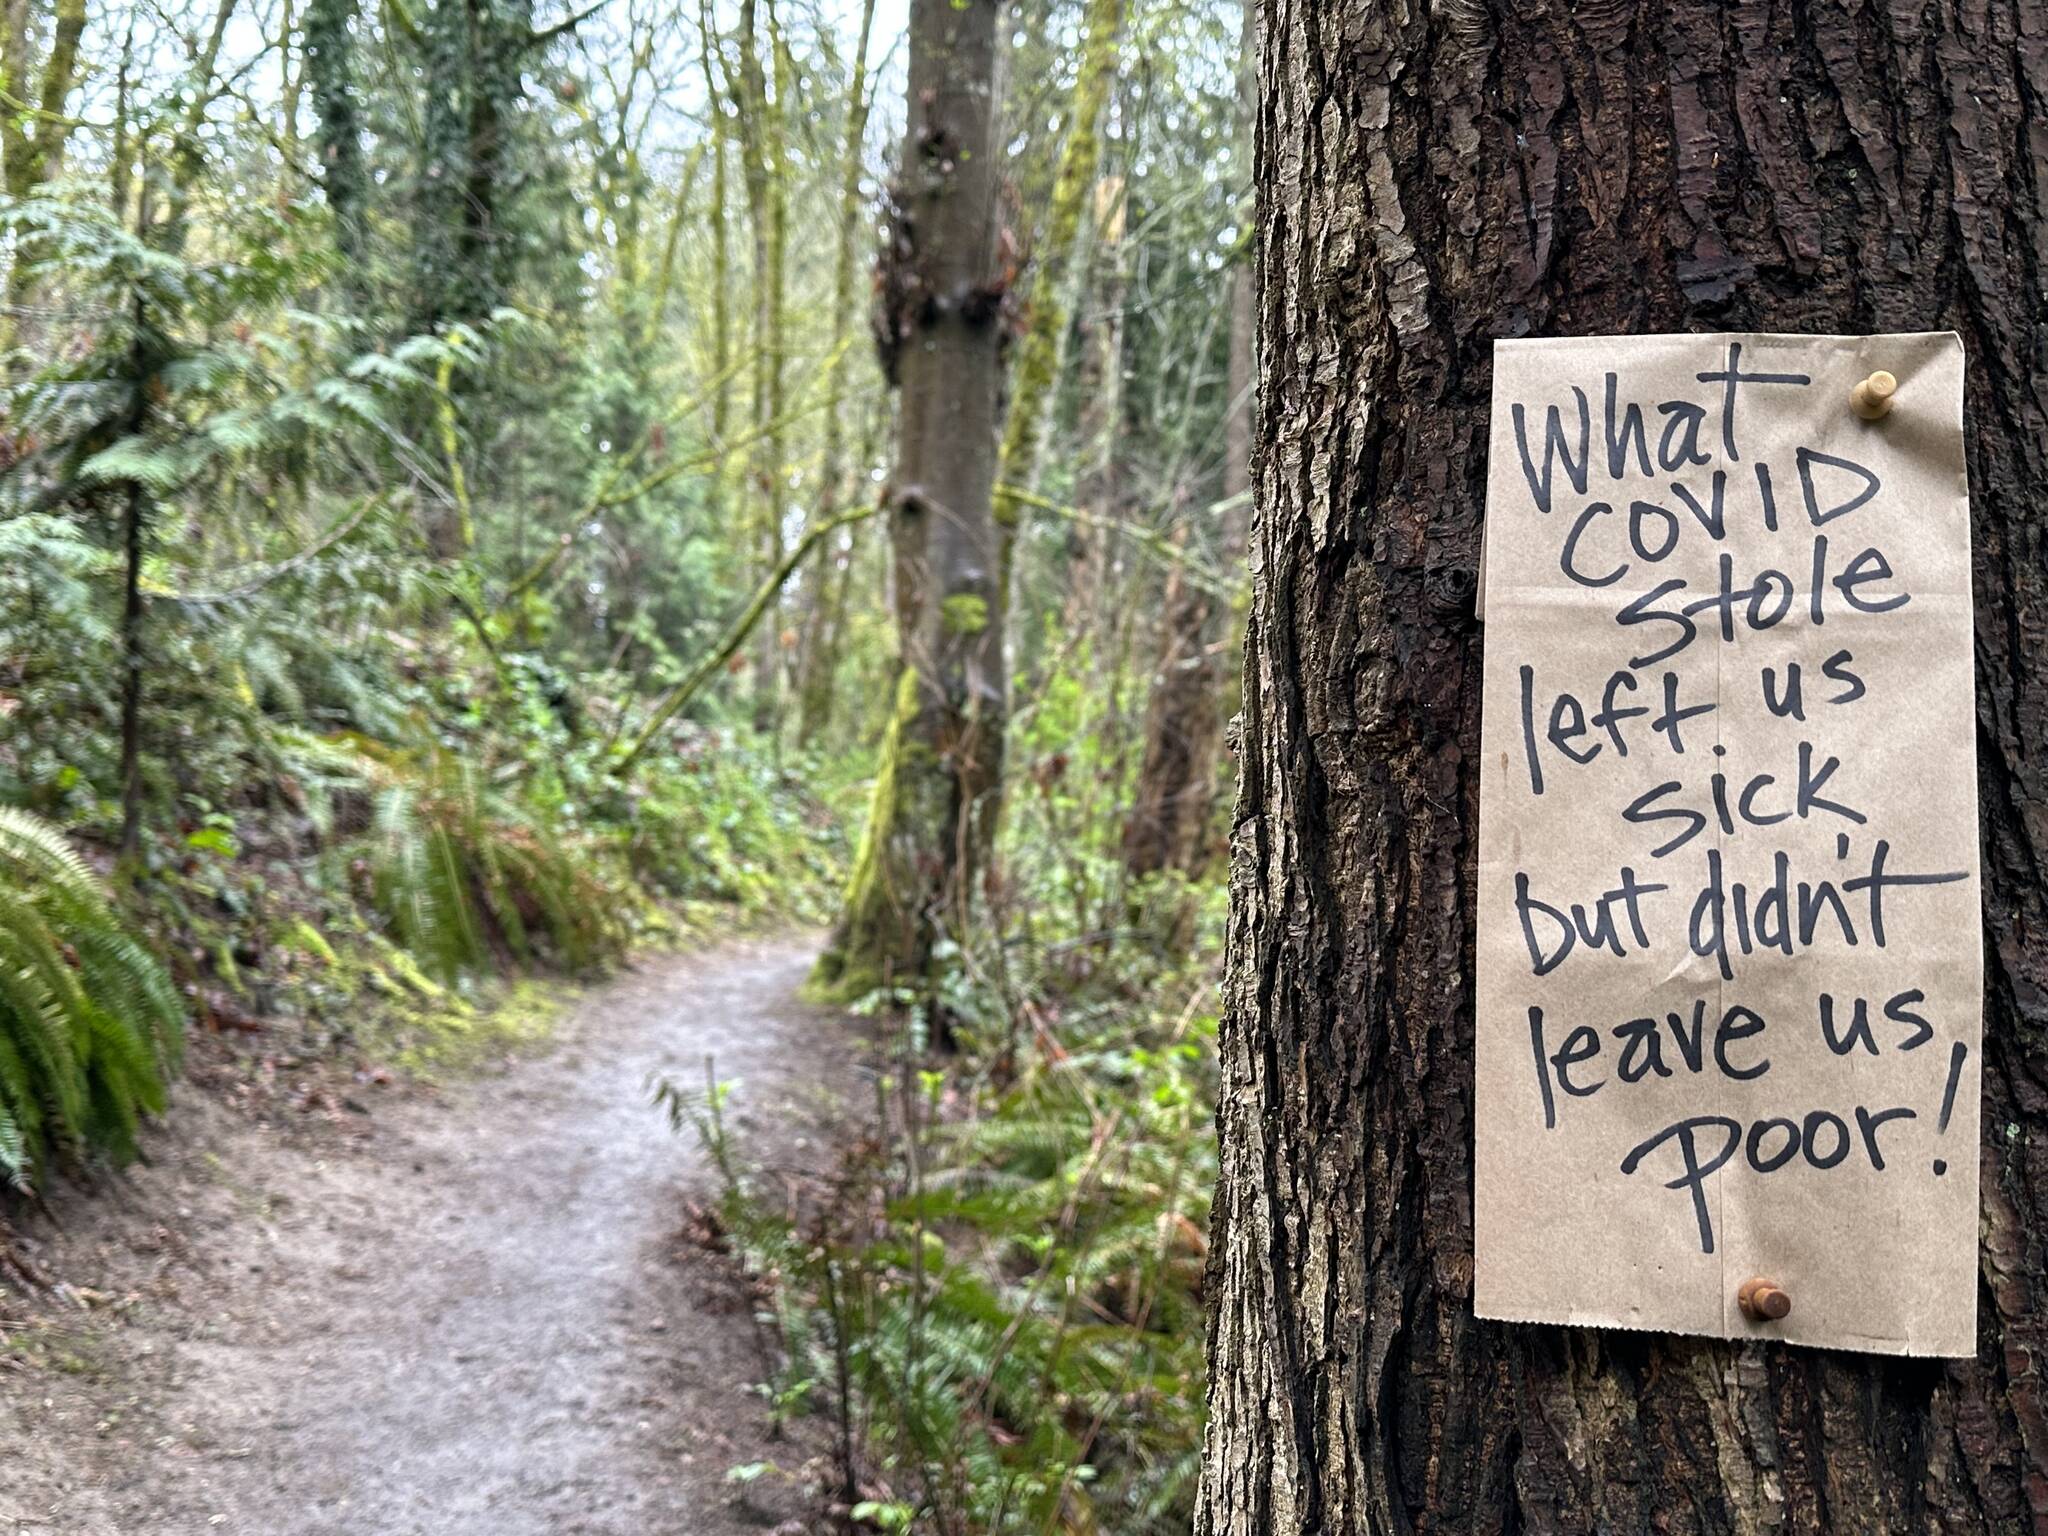 What
COVID
stole
left us
sick
but didn't
leave us
poor!